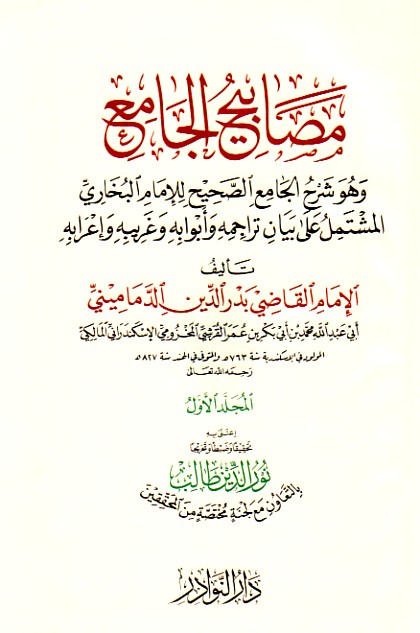 مَصَابِيحُ الجَامِعِ
وَهُوَ شَرْحُ الجَامِعِ الصَّحِيحِ لِلإِمَامِ البُخَارِيِّ
المُشْتَمِلُ عَلَى بَيَانِ تَرَاجِمِهِ وَأَبْوَابِهِ وَغَرِيبِهِ وَإِعْرَابِهِ
تَأليفُ
الإِمَامِ القَاضِي بَدْرِ الدِّينِ الدَّمَامِينِيِّ
أَبِي عَبْدِ اللهِ مُحَمَّدِ بْنِ أَبِي بَكْرِ بْنِ عُمَرَ القُرَشِيِّ المَخْزُومِيِّ الإِسْكَنْدَرَانِيِّ المَالِكِيِّ
المولود في الإسكندرية سنة ٧٦٣هـ والمتوفى في الهند سنة ٨٢٧هـ
رَحِمَهُ اللهُ تَعَالَى
المُجَلَّدُ الأَوَّلُ
اعتنى به
تحقيقًا وضبطًا وتخريجًا
نُورُ الدِّينِ طَالِب
بِالتَّعَاوُنِ مَعَ لَجْنَةٍ مُخْتَصَّةٍ مِنَ المُحَقِّقِينَ
دَارُ النَّوَادِرِ